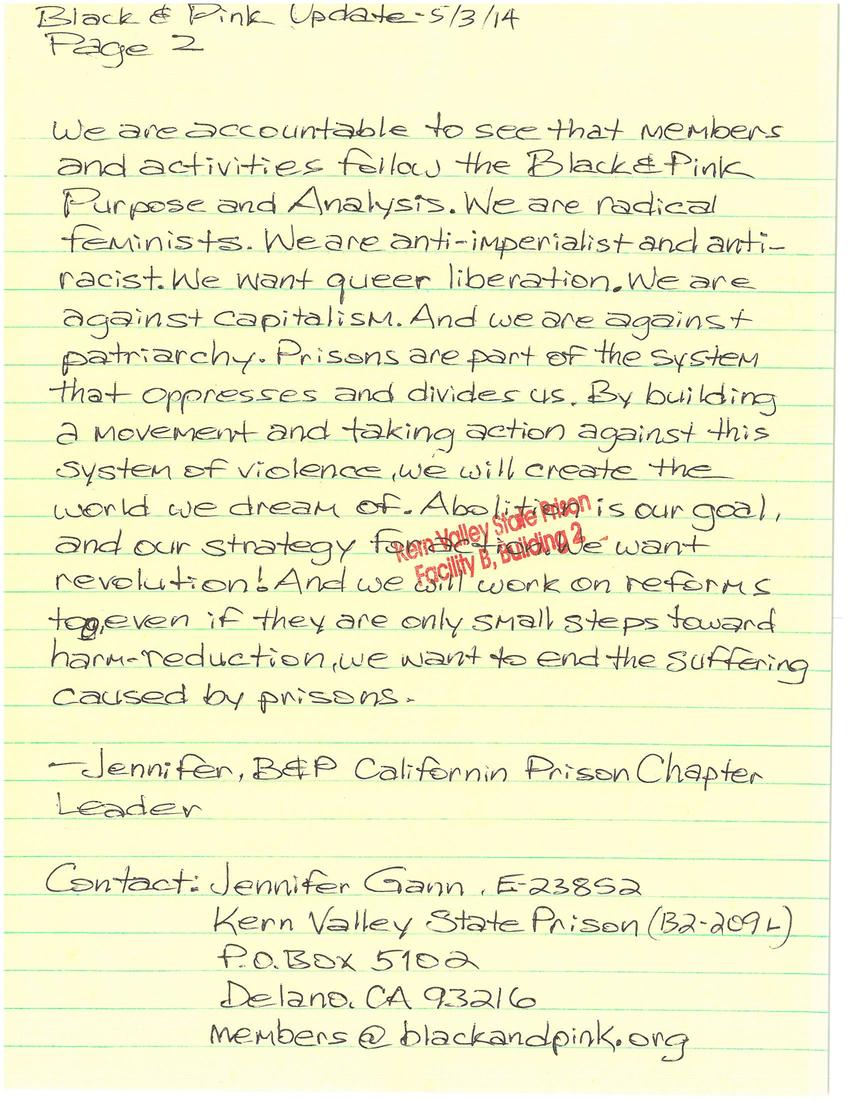 Black & Pink Update-5/3/14
Page 2
We are accountable to see that members
and activities follow the Black & Pink
Purpose and Analysis. We are radical
feminists. We are anti-imperialist and anti-
racist. We want queer liberation. We are
against capitalism. And we are against
patriarchy. Prisons are part of the system
that oppresses and divides us. By building
a movement and taking action against this
system of violence, we will create the
world we dream of. Abolition is our goal,
and our strategy for action. We want
revolution! And we will work on reforms
too, even if they are only small steps toward
harm-reduction, we want to end the suffering
caused by prisons.
Kern Valley State Prison
Facility B, Building 2
—Jennifer, B&P Californin Prison Chapter
Leader
Contact: Jennifer Gann, E-23852
Kern Valley State Prison (B2-209L)
P.O. Box 5102
Delano, CA 93216
members@blackandpink.org